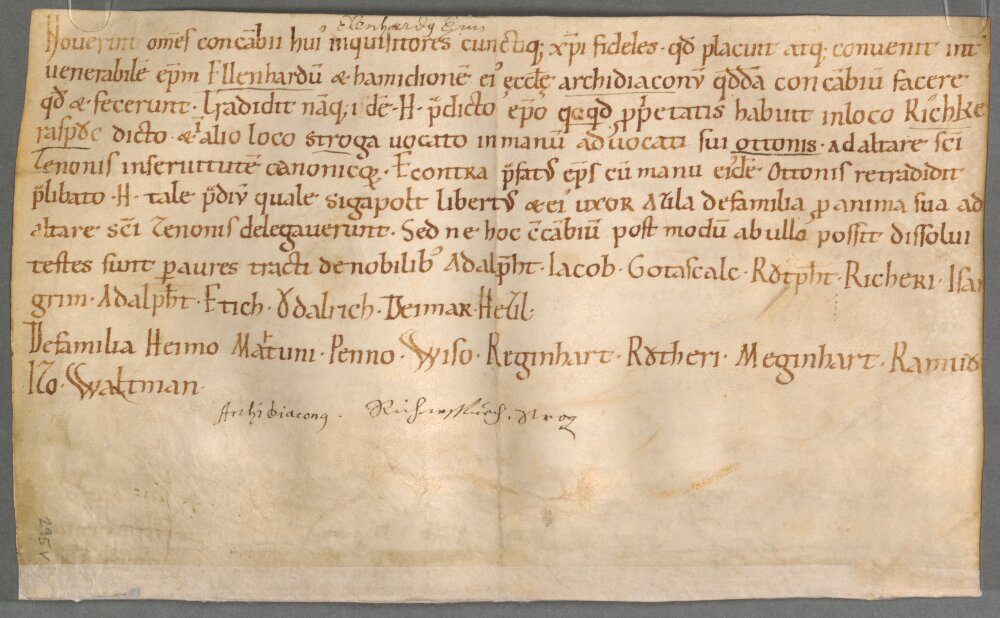 Ellenhardꝰ Epus
Noverint om̄s concābii huiꝰ inquisitores cunctiq; xp̄i fideles · qd̄ placuit atq; convenit int̄
venerabilē ep̄m Ellenhardū & hamichonē eiꝰ ęccłę archidiaconū qddā concābiū facere
qd̄ & fecerunt · Tradidit nāq; idē · H · p̄dicto ep̄o qcqd ꝓp̄etatis habuit in loco
dicto · & alio loco stroga vocato in manū advocati sui ottonis · ad altare sc̄i
Zenonis in servitutē canonicoꝝ · E contra p̄fatꝰ ep̄s cū manu eiꝰdē Ottonis retradidit
p̄libato · H · tale p̄diū quale sigapolt libertꝰ & eiꝰ uxor Azila de familia ꝓ anima sua ad
altare sc̄i Zenonis delegaverunt · Sed ne hoc c̄cābiū post modū ab ullo possit dissolui
testes sunt ꝑ aures tracti de nobilibꝰ Adalp̄ht · Iacob · Gotascalc · Růtp̄ht · Richeri · Isan
grim · Adalp̄ht · Etich · Ůdalrich · Deimar · Hezil ·
De familia Heimo Matuni · Penno · Wiso · Reginhart · Růtheri · Meginhart · Ramuo
No · Waltman ·
Archidiaconꝰ ·
295 v